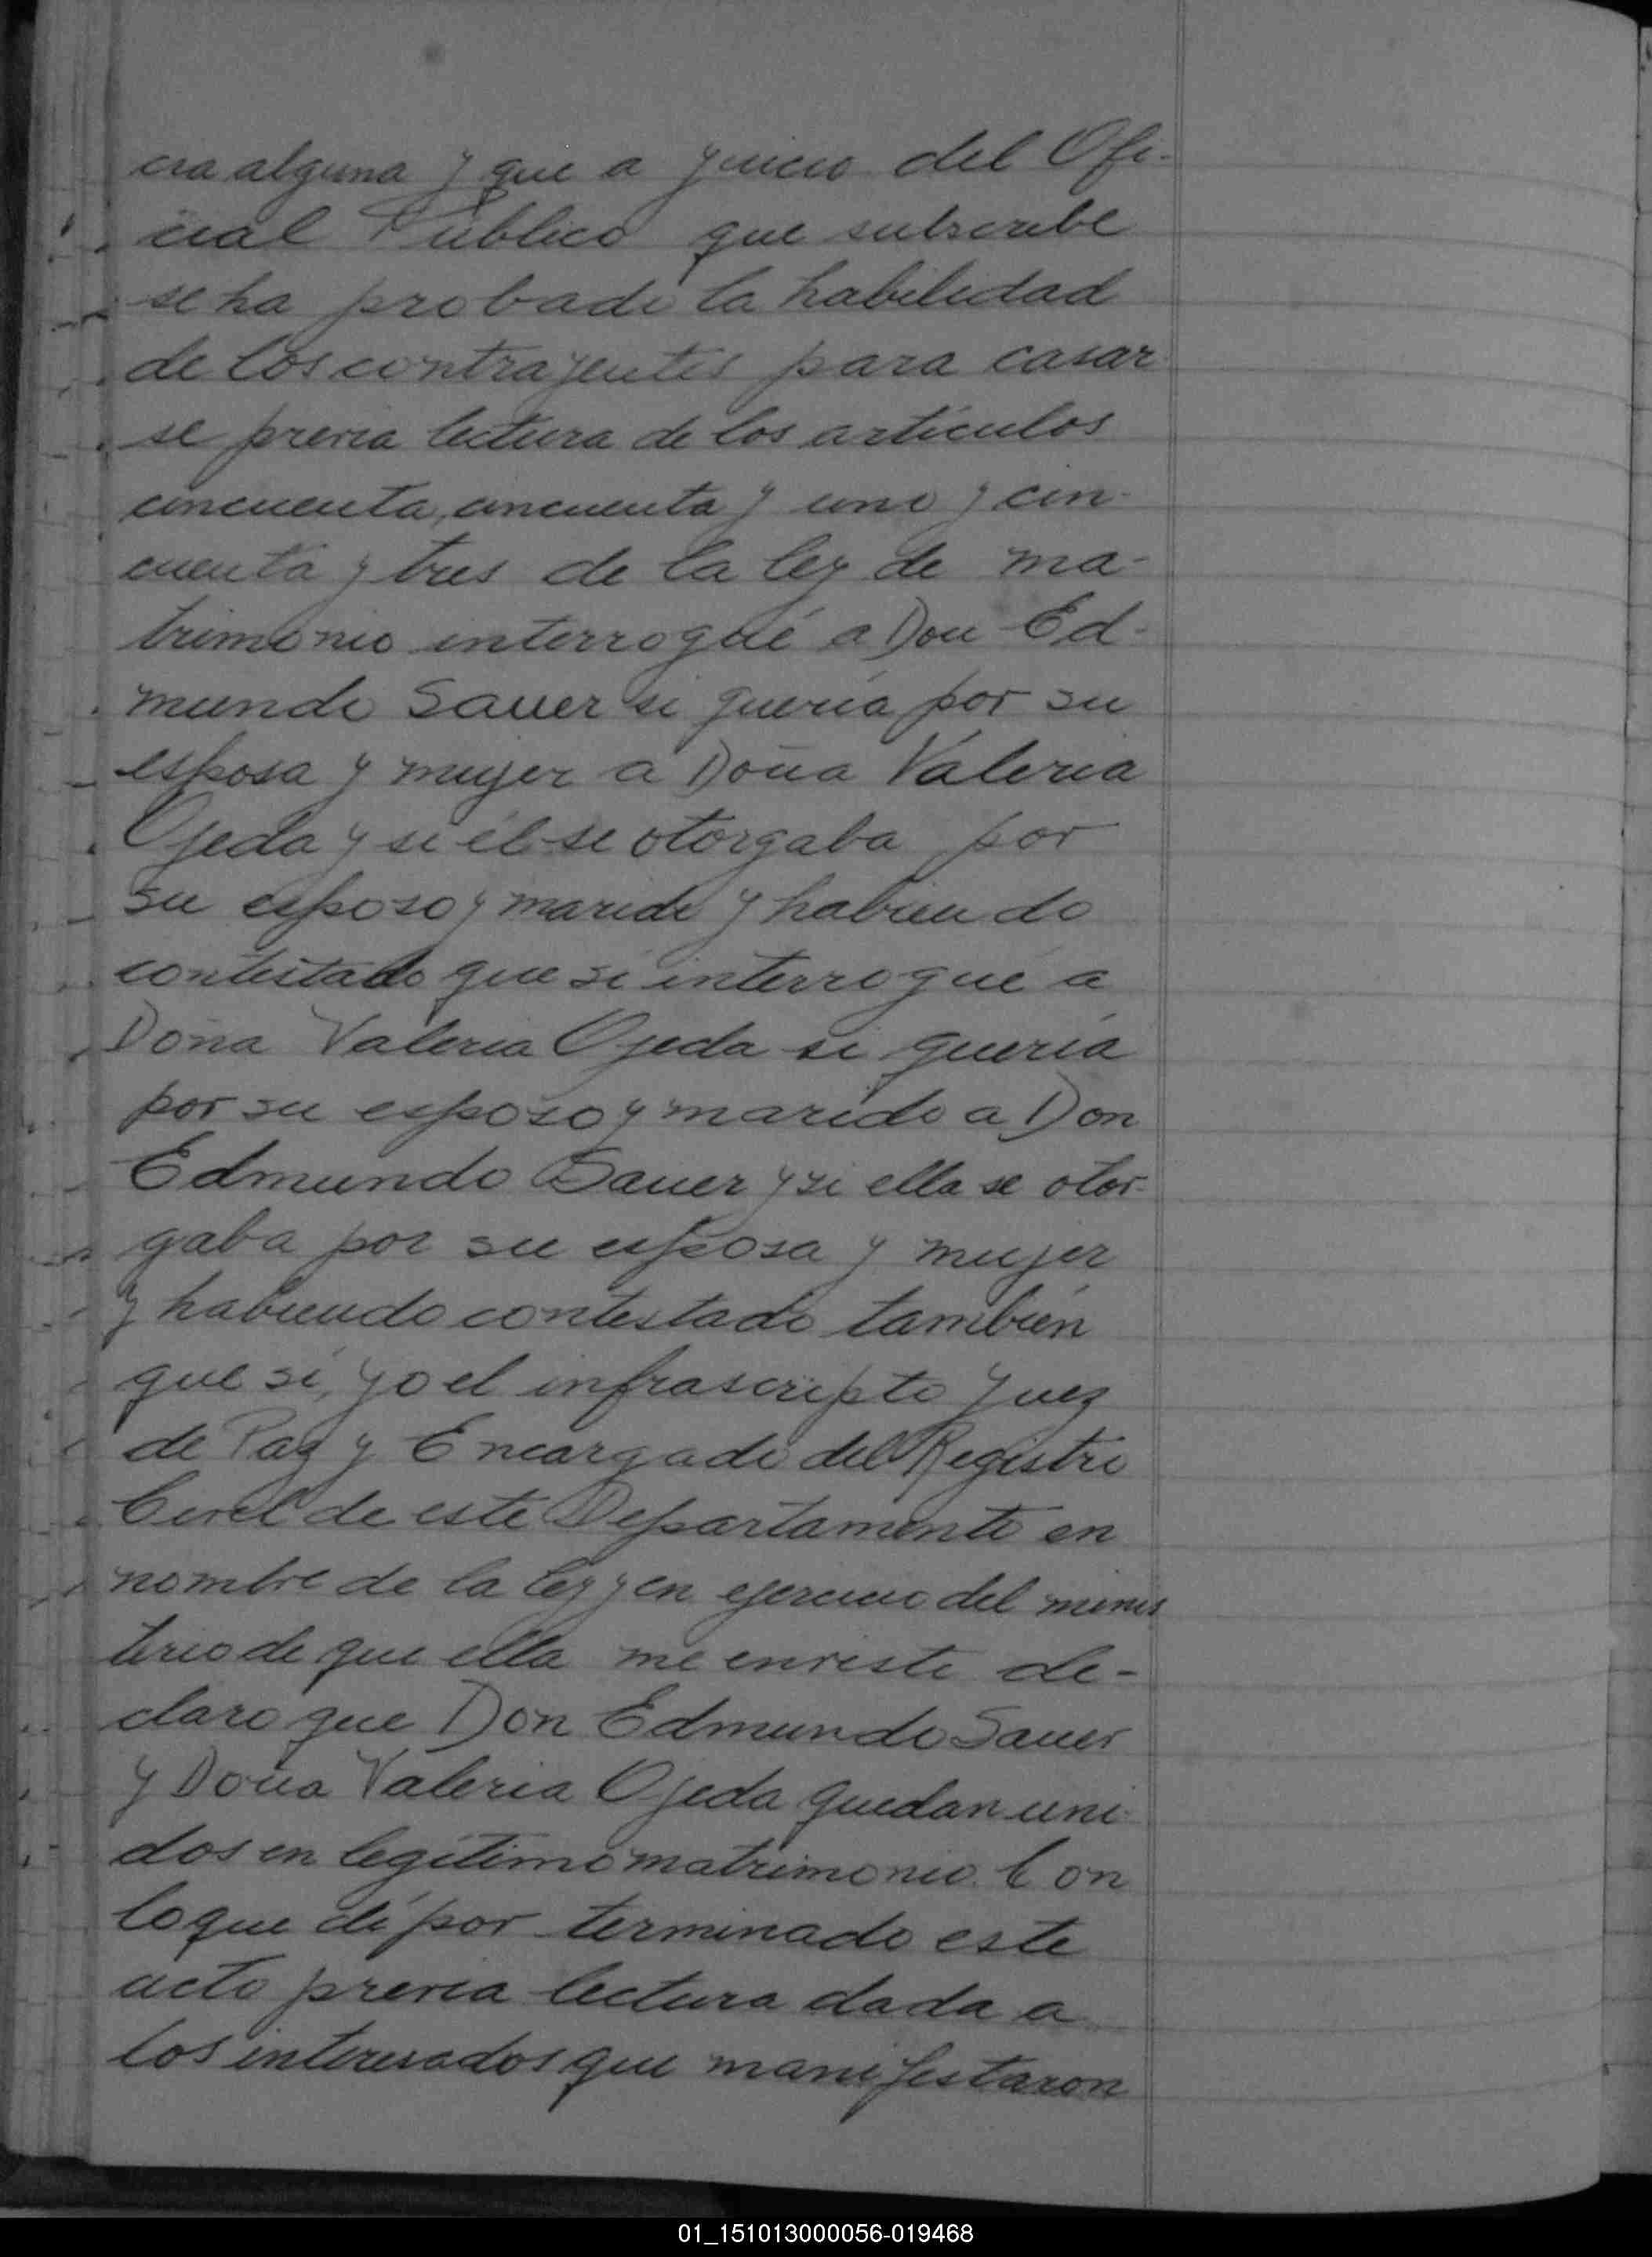 cia alguna y que a juicio del Ofi-
cial Público que subscribe
se ha probado la habilidad
de los contrayentes para casar
se previa lectura de los artículos
cincuenta, cincuenta y uno y cin-
cuenta y tres de la ley de ma-
trimonio interrogué a Don Ed-
mundo Sauer si quería por su
esposa y mujer a Doña Valeria
Ojeda y si él se otorgaba por
su esposo y marido y habiendo
contestado que sí interrogué a
Doña Valeria Ojeda si quería
por su esposo y marido a Don
Edmundo Sauer y si ella se otor-
gaba por su esposa y mujer
y habiendo contestado también
que sí, yo el infrascripto Juez
de Paz y Encargado del Registro
Civil de este Departamento en
nombre de la ley y en ejercicio del minis
terio de que ella me enviste de-
claro que Don Edmundo Sauer
y Doña Valeria Ojeda quedan uni-
dos en legítimo matrimonio. Con
lo que dí por terminado este
acto previa lectura dada a
los interesados que manifestaron
01_151013000056-019468